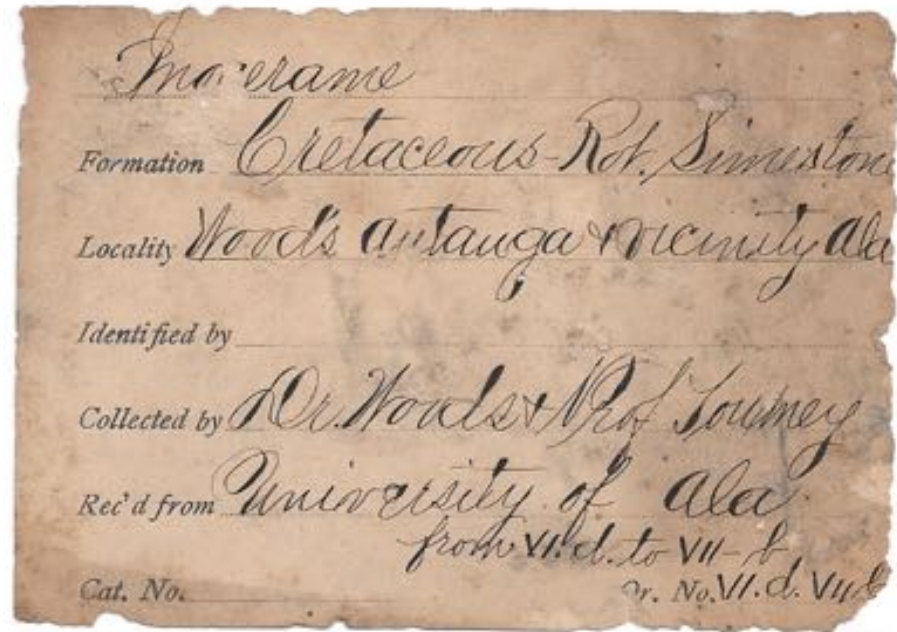 Inocerame
Formation Cretaceous-Rot. Limestone
Locality Wood's Autauga & vicinity Ala
Identified by
Collected by Dr. Woods & Prof Toumey
Rec'd from University of Ala
from VI.d. to VII-b
Cat. No. Dr. No. VI.d. VII b